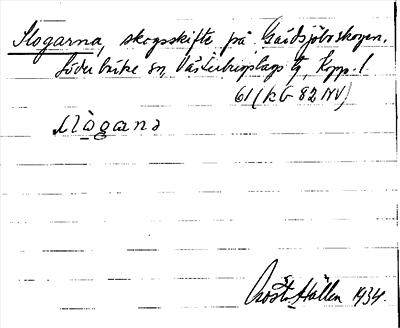 Slogarna, skogsskifte på Gårdsjöbo skogen.
Söderbärke sn Västerbergslags tg, Kopp. l.
61 (kb 82 NV)
slògana
Gösta Hallen 1934.